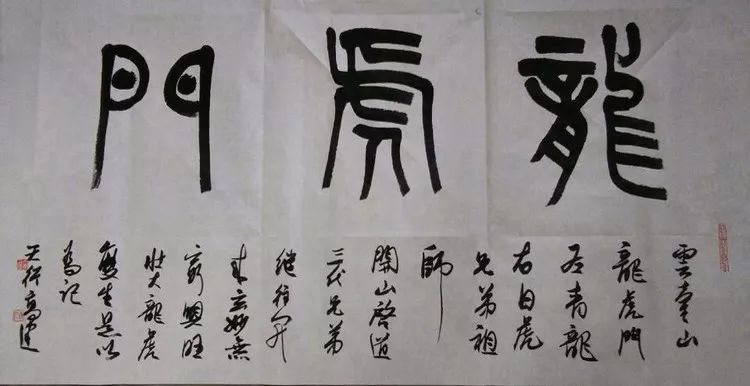 龍虎門
雲臺山
龍虎門
左青龍
右白虎
兄弟祖
師
開山啓道
三代兄弟
继往開
来玄妙無
興旺
壯大龍虎
生是以
為記